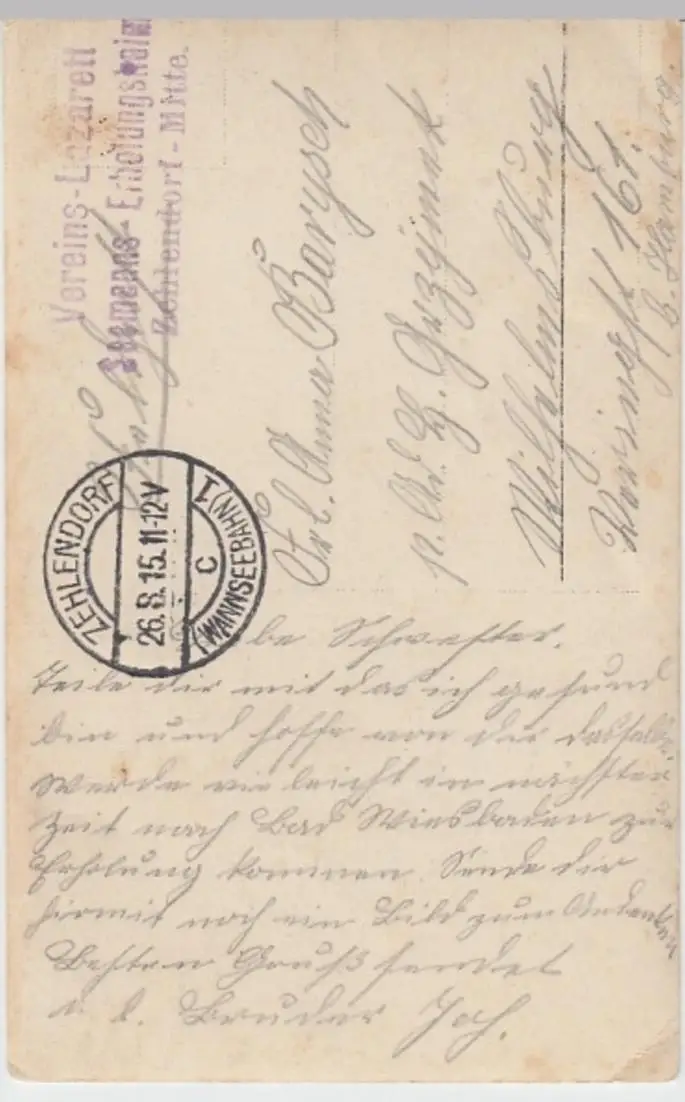 Vereins-Lazarett
Seemanns-Erholungsheim
Zehlendorf-Mitte.
ZEHLENDORF
26.8.15.11-12V
(WANNSEEBAHN) 1
c
Frl. Anna Barysch
p. Ad. L. Grzymek
Wilhelmsburg
161.
b. Hamburg.
Liebe Schwester.
Teile dir mit das ich gesund
bin und hoffe von dir dasselbe.
Werde vieleicht in nächster
Zeit nach Bad Wiesbaden zur
Erholung kommen. Sende dir
hirmit noch ein Bild zum Andenken
Besten Gruß sendet
d. Bruder Joh.